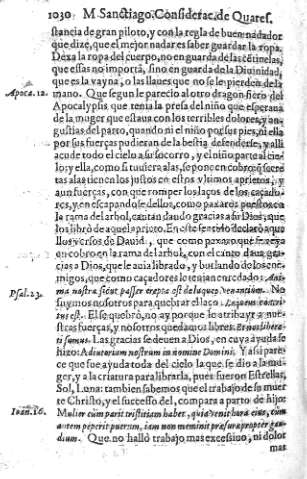 1030 M. Sanctiago, Considerac. de Quares.
stancia de gran piloto, y con la regla de buen nadador
que dize, que el mejor nadar es saber guardar la ropa.
Dexa la ropa del cuerpo, no en guarda de las cētinelas,
que essas no importā, sino en guarda de la Diuinidad,
que es la vayna, o las llaues que no se le pierden de la
Apoca. 12. mano. Que segun le parecio al otro dragon fiero del
Apocalypsi que tenia la presa del niño que esperaua
de la muger que estaua con los terribles dolores, y an
gustias del parto, quando ni el niño por sus pies, ni ella
por sus fuerças pudieran de la bestia defenderse, y alli
acude todo el cielo a su socorro, y el niño parte al cie
lo: y ella, como si tuuiera alas, se pone en cobro
tas alas tienen los justos en estos vltimos aprietos, y
aun fuerças, con que romper los laços de los caçado
res, y en escapandose dellos, como paxaros puestos en
la rama del arbol, cantan dando gracias a su Dios, que
los librò de aquel aprieto. En este sentido declarò aque
llos versos de Dauid, que como paxaro que se veya
en cobro en la rama del arbol, con el canto daua gra-
cias a Dios, que le auia librado, y burlando de los ene-
migos, que como caçadores lo traian enredado: Ani
Psal. 23. ma nostra sicut passer erepta est de laqueo venantium. No
fuymos nosotros para quebrar el laço. Laqueus contri
tus est. El se quebrò, no ay porque lo atribuyr a nue
stras fuerças, y nosotros quedamos libres. Et nos libera
ti sumus. Las gracias se deuen a Dios, en cuya ayuda se
hizo: Adiutorium nostrum in nomine Domini. Y assi pare
ce que fue ayuda toda del cielo la que se dio a la mu-
ger, y a la criatura para librarla, pues fueron Estrellas,
Sol, Luna: tambien sabemos que el trabajo de su muer
te Christo, y el successo del, compara a parto de hijo:
Ioan. 16. Mulier cùm parit tristitiam habet, quia venit hora eius, cùm
autem peperit puerum, iam non meminit pressuræ propter gau
dium. Que no hallò trabajo mas excessiuo, ni dolor
mas